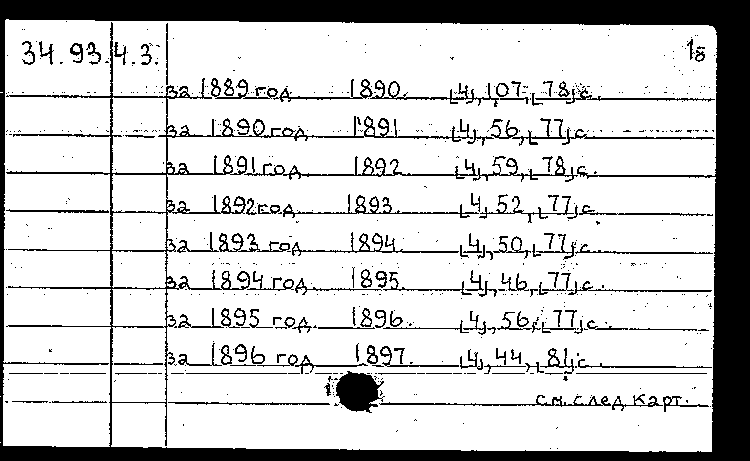 34.93.4.3. 18
за 1889 год 1890. [4], 107, [78] с.
за 1890 год 1891 [4], 56, [77] с
за 1891 год 1892 [4], 59, [78] с.
за 1892 год 1893. [4], 52, [77] с
за 1893 год 1894. [4], 50, [77] с
за 1894 год 1895. [4], 46, [77] с.
за 1895 год 1896. [4], 56, [77] с.
за 1896 год 1897. [4], 44, [81] с.
см. след. карт.